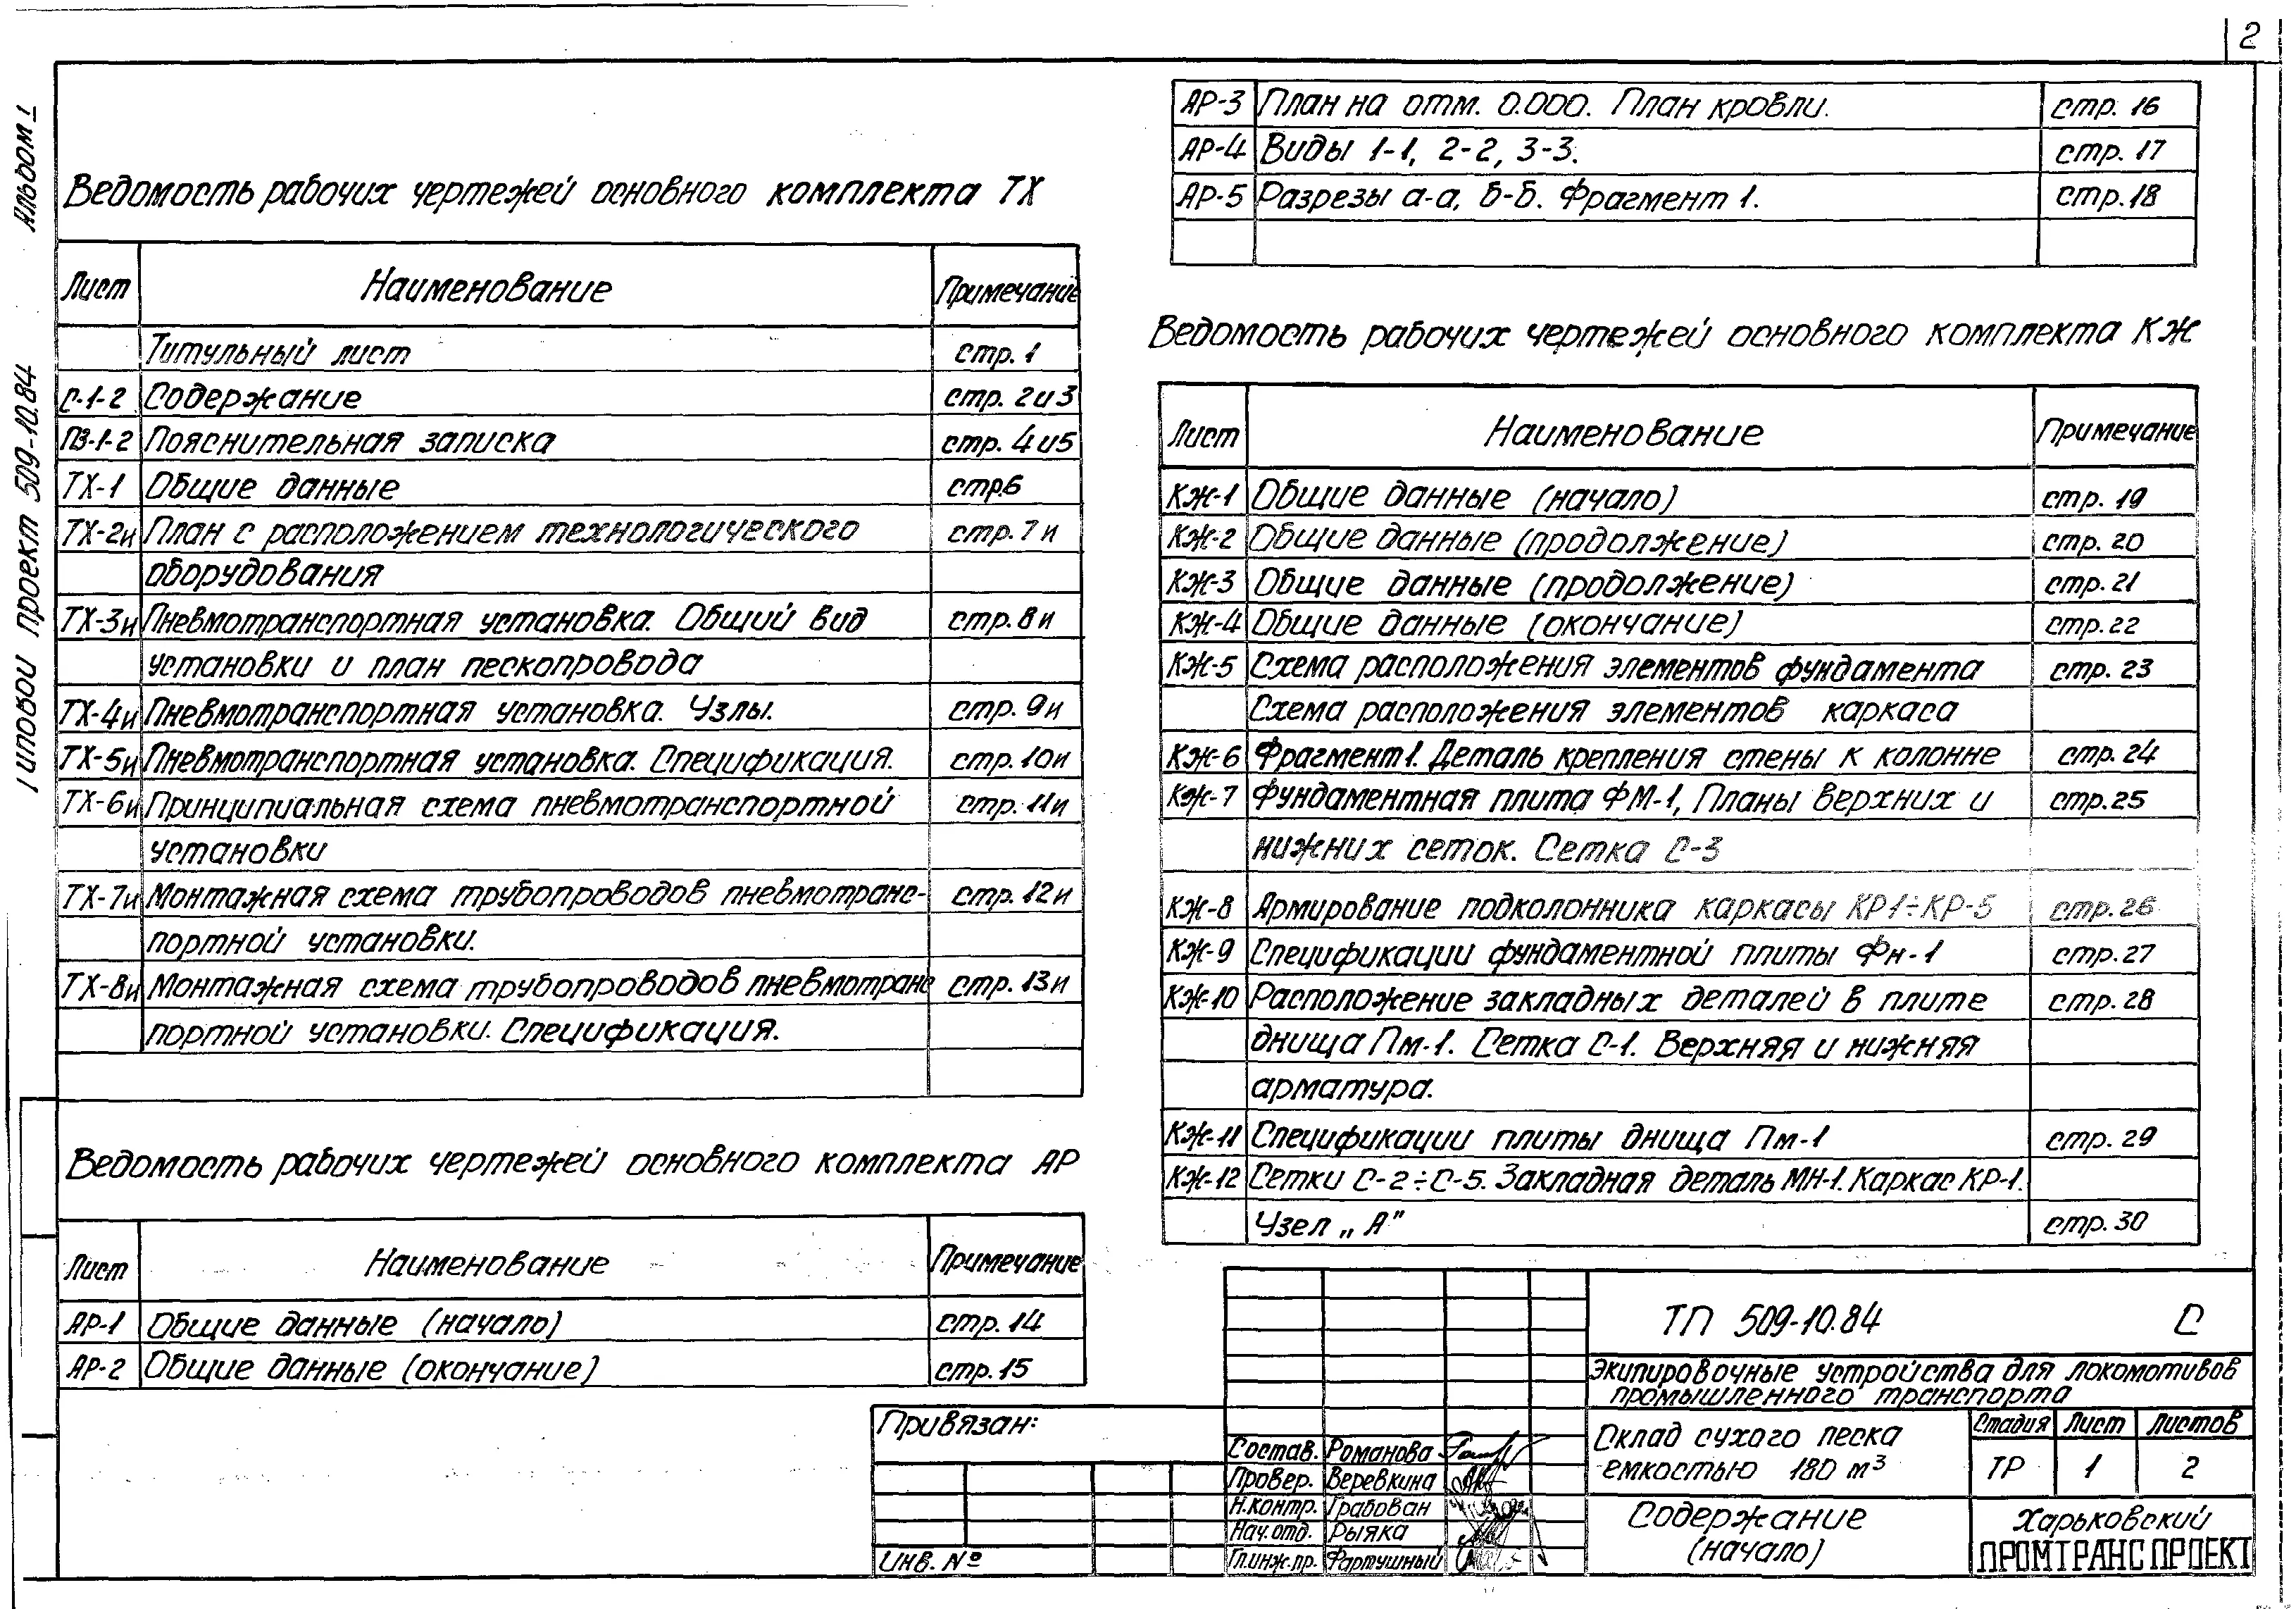 2
Альбом 1
Типовой проект 509-10.84
Ведомость рабочих чертежей основного комплекта ТХ
Лист Наименование Примечание
Титульный лист стр. 1
С-1-2 Содержание стр. 2и3
ПЗ-1-2 Пояснительная записка стр. 4и5
ТХ-1 Общие данные стр.6
ТХ-2и План с расположением технологического стр. 7и
оборудования
ТХ-3и Пневмотранспортная установка. Общий вид стр. 8и
установки и план пескопровода
ТХ-4и Пневмотранспортная установка. Узлы. стр. 9и
ТХ-5и Пневмотранспортная установка. Спецификация. стр. 10и
ТХ-6и Принципиальная схема пневмотранспортной стр. 11и
установки
ТХ-7и Монтажная схема трубопроводов пневмотранс- стр. 12и
портной установки.
ТХ-8и Монтажная схема трубопроводов пневмотранс стр. 13и
портной установки. Спецификация.
Ведомость рабочих чертежей основного комплекта АР
Лист Наименование Примечание
АР-1 Общие данные (начало) стр. 14
АР-2 Общие данные (окончание) стр. 15
АР-3 План на отм. 0.000. План кровли. стр. 16
АР-4 Виды 1-1, 2-2, 3-3. стр. 17
АР-5 Разрезы а-а, б-б. Фрагмент 1. стр. 18
Ведомость рабочих чертежей основного комплекта КЖ
Лист Наименование Примечание
КЖ-1 Общие данные (начало) стр. 19
КЖ-2 Общие данные (продолжение) стр. 20
КЖ-3 Общие данные (продолжение) стр. 21
КЖ-4 Общие данные (окончание) стр. 22
КЖ-5 Схема расположения элементов фундамента стр. 23
Схема расположения элементов каркаса
КЖ-6 Фрагмент 1. Деталь крепления стены к колонне стр. 24
КЖ-7 Фундаментная плита ФМ-1, Планы верхних и стр. 25
нижних сеток. Сетка С-3
КЖ-8 Армирование подколонника каркасы КР1÷КР-5 стр. 26
КЖ-9 Спецификации фундаментной плиты Фн-1 стр. 27
КЖ-10 Расположение закладных деталей в плите стр. 28
днища Пм-1. Сетка С-1. Верхняя и нижняя
арматура.
КЖ-11 Спецификации плиты днища Пм-1 стр. 29
КЖ-12 Сетки С-2÷С-5. Закладная деталь МН-1. Каркас КР-1.
Узел „А" стр. 30
ТП 509-10.84 С
Экипировочные устройства для локомотивов
промышленного транспорта
Привязан:
Инв. №
Состав. Романова
Провер. Веревкина
Н.контр. Грабован
Нач. отд. Рыяка
Гл.инж.пр. Фартушный
Склад сухого песка
емкостью 180 м³
Стадия Лист Листов
ТР 1 2
Содержание
(начало)
Харьковский
ПРОМТРАНСПРОЕКТ